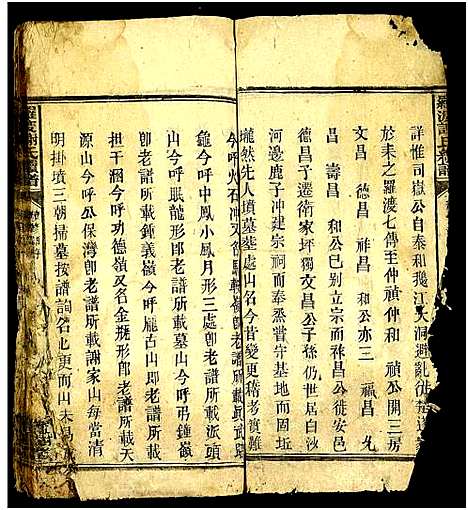 詳惟司嶽公自泰和鵞江大洞避亂
於耒之羅渡七傳至仲禎仲和 禎公開三房
文昌 德昌 祥昌 和公亦三 福昌 允
昌 壽昌 和公已別立宗而祥昌公徙安邑
德昌子遷衛家坪獨文昌公子孫仍世居白沙
河邊鹿子冲建宗祠而奉烝嘗守基地而固坵
壠然先人墳墓葬處山名今昔變更稽考實難
今呼火石冲又名
龜今呼中鳳小鳳月形三處卽老譜所載派頭
山今呼眠龍形卽老譜所載墓山今呼弔鍾嶺
卽老譜所載鍾義嶺今呼龐古山卽老譜所載
担干涸今呼功德嶺又名金撓形卽老譜所載天
源山今呼公保灣卽老譜所載謝家山每當清
明掛墳三朝掃墓按譜詢名已更而山未